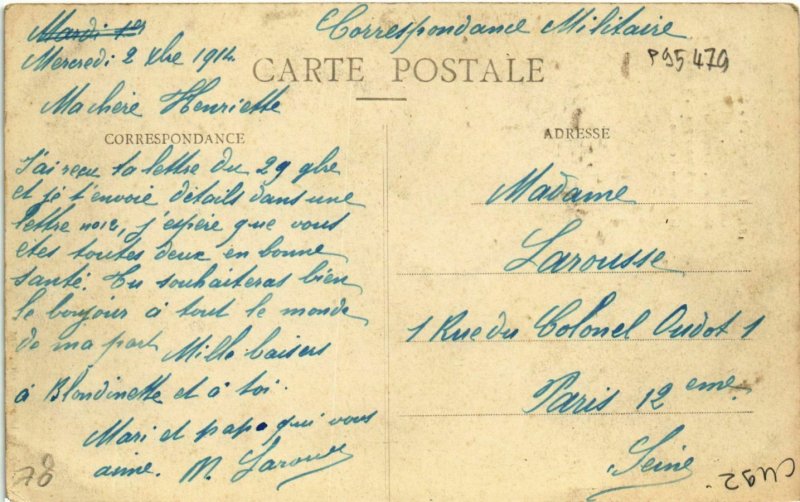 Mardi 1er
Mercredi 2 Xbre 1914
Correspondance Militaire
P95 479
CARTE POSTALE
Ma chère Henriette
CORRESPONDANCE
J'ai reçu ta lettre du 29 9bre
et je t'envoie détails dans une
lettre, j'espère que vous
êtes toutes deux en bonne
santé. Tu souhaiteras bien
le bonjour à tout le monde
de ma part Mille baisers
à Blondinette et à toi.
Mari et papa qui vous
aime. M. Larousse
78
ADRESSE
Madame
Larousse
1 Rue du Colonel Oudot 1
Paris 12eme
Seine
CU92